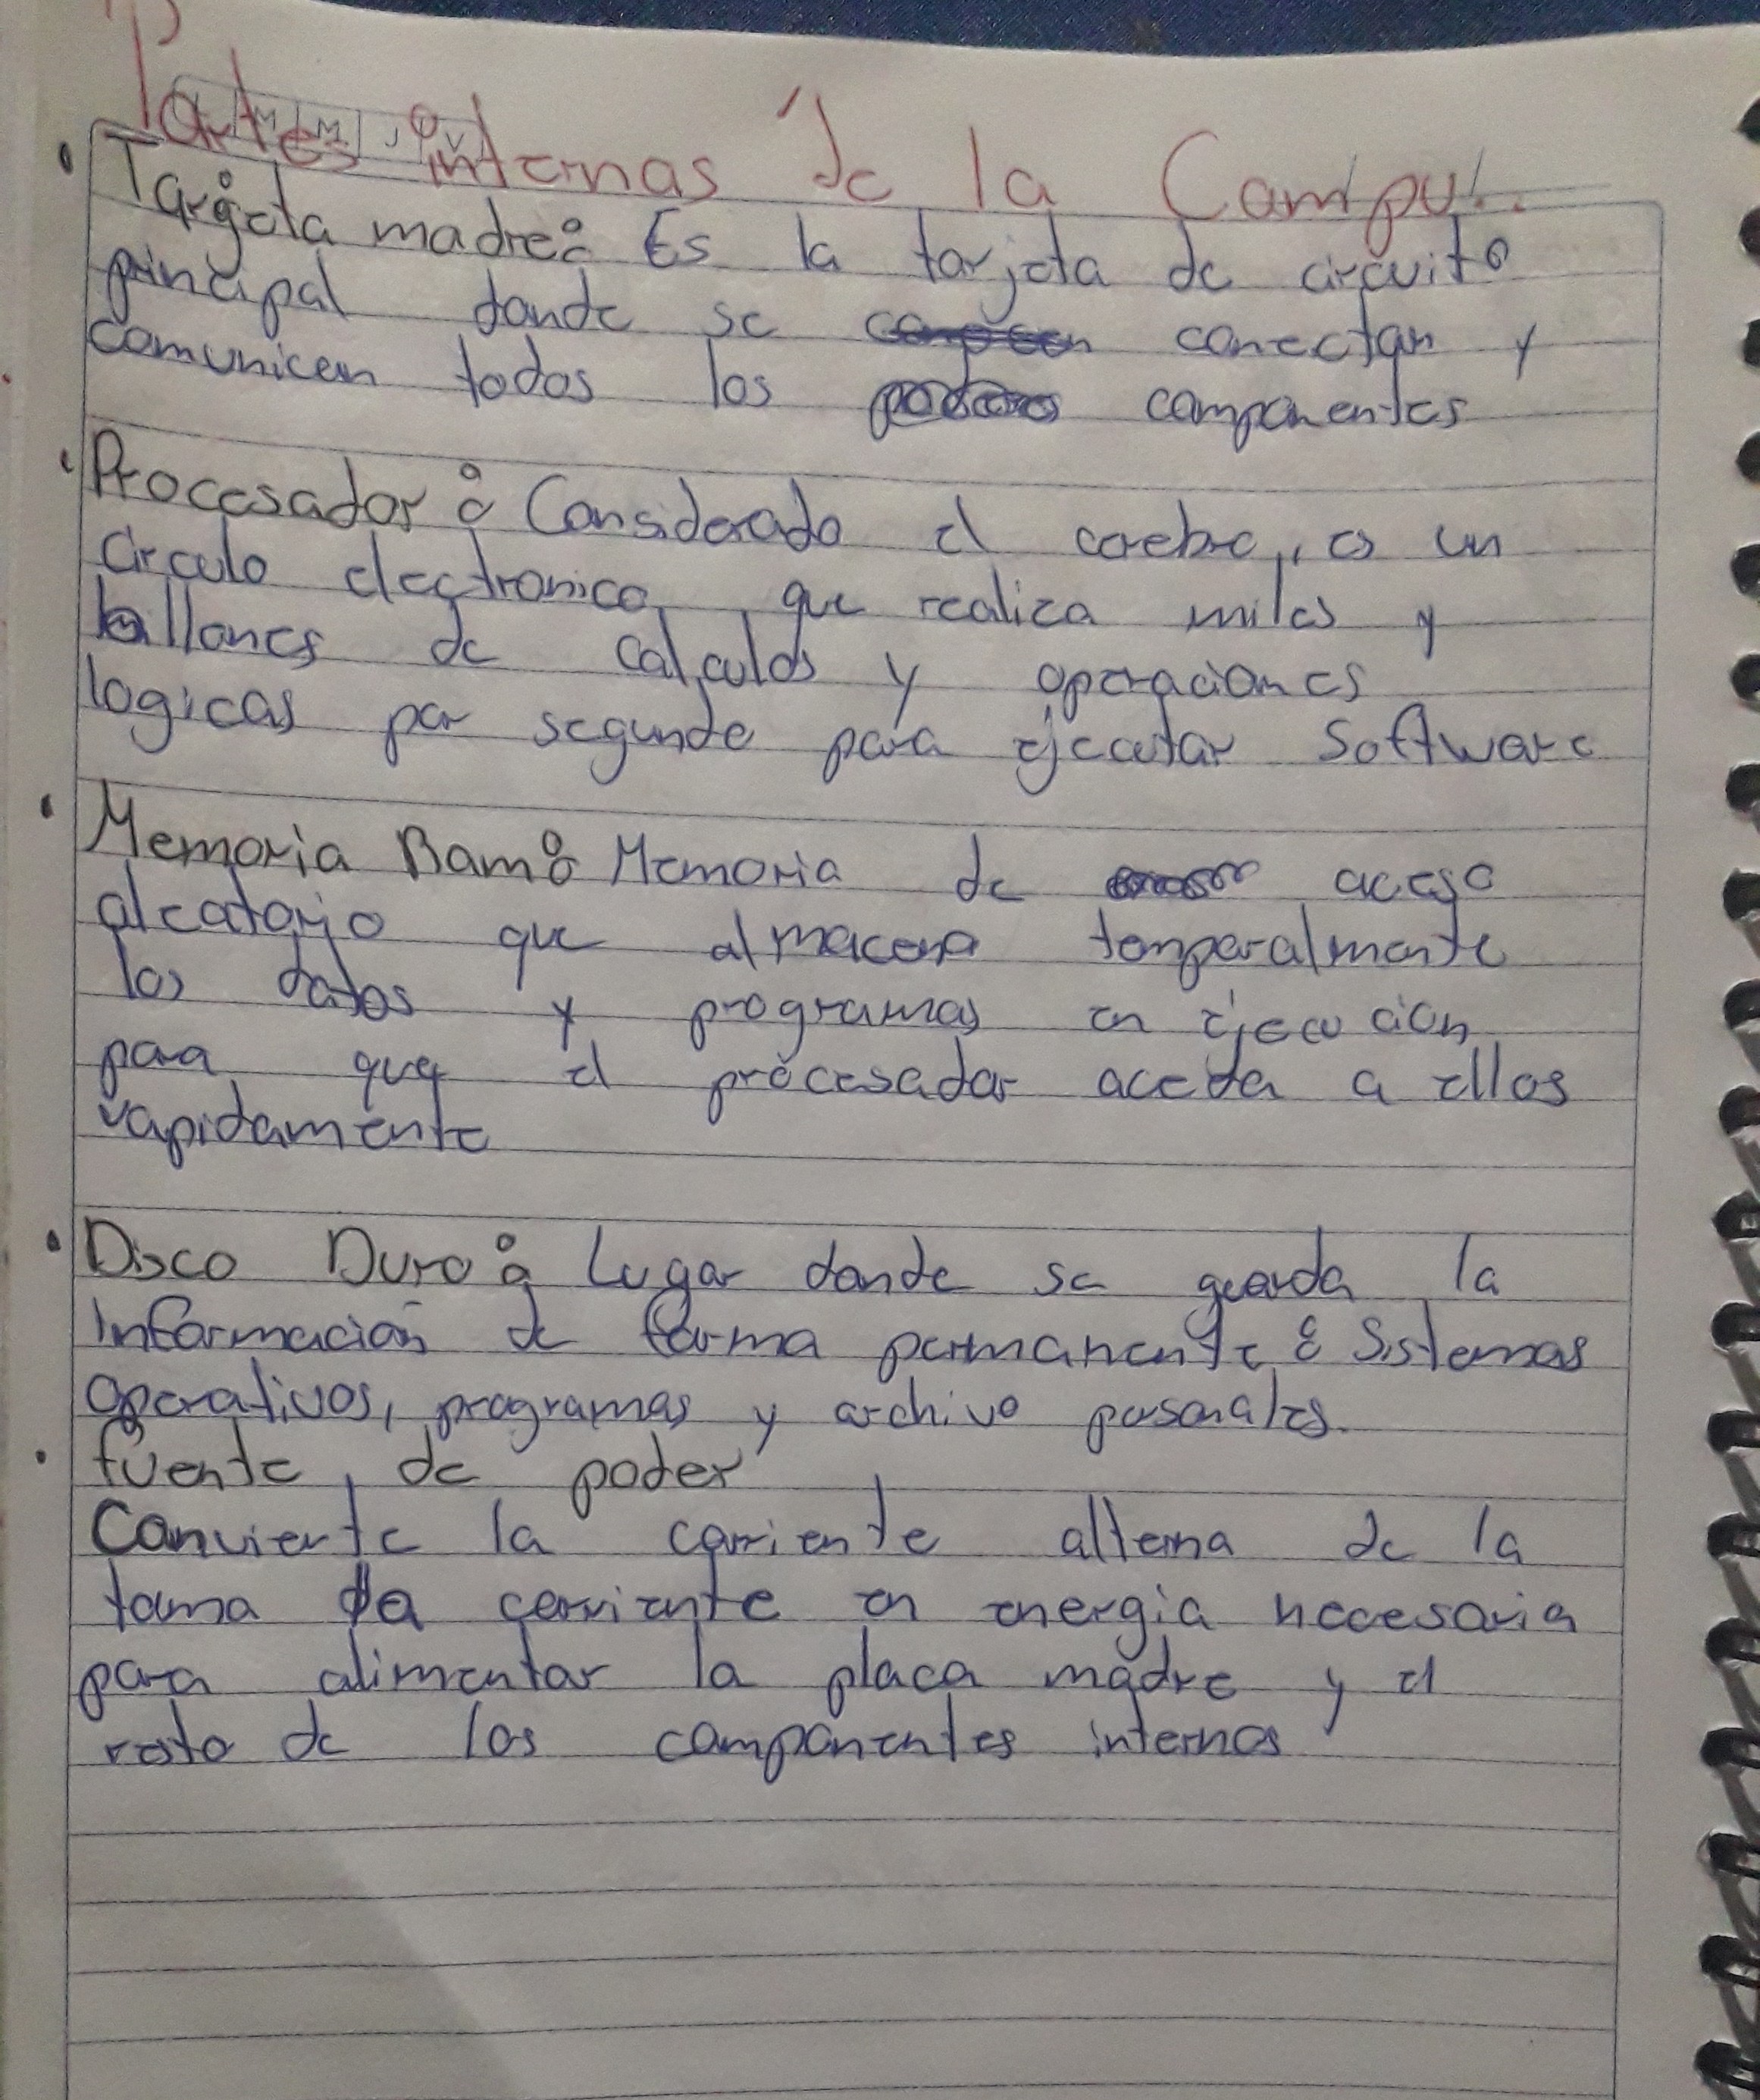 Partes internas de la Compu!..
• Targeta madre: Es la tarjeta de circuito
principal donde se conectan y
comunican todos los componentes
• Procesador: Considerado el coebro, es un
circulo electronico que realiza miles y
billones de calculos y operaciones
logicas por segundo para ejecutar Software
• Memoria Ram: Memoria de aceso
aleatorio que almacena temporalmente
los datos y programas en ejecución
para que el procesador aceda a ellos
rapidamente
• Disco Duro: Lugar donde se guarda la
Información de forma permanente: Sistemas
operativos, programas y archivo personales.
• fuente de poder
Convierte la corriente alterna de la
toma de corriente en energia necesaria
para alimentar la placa madre y el
resto de los componentes internos